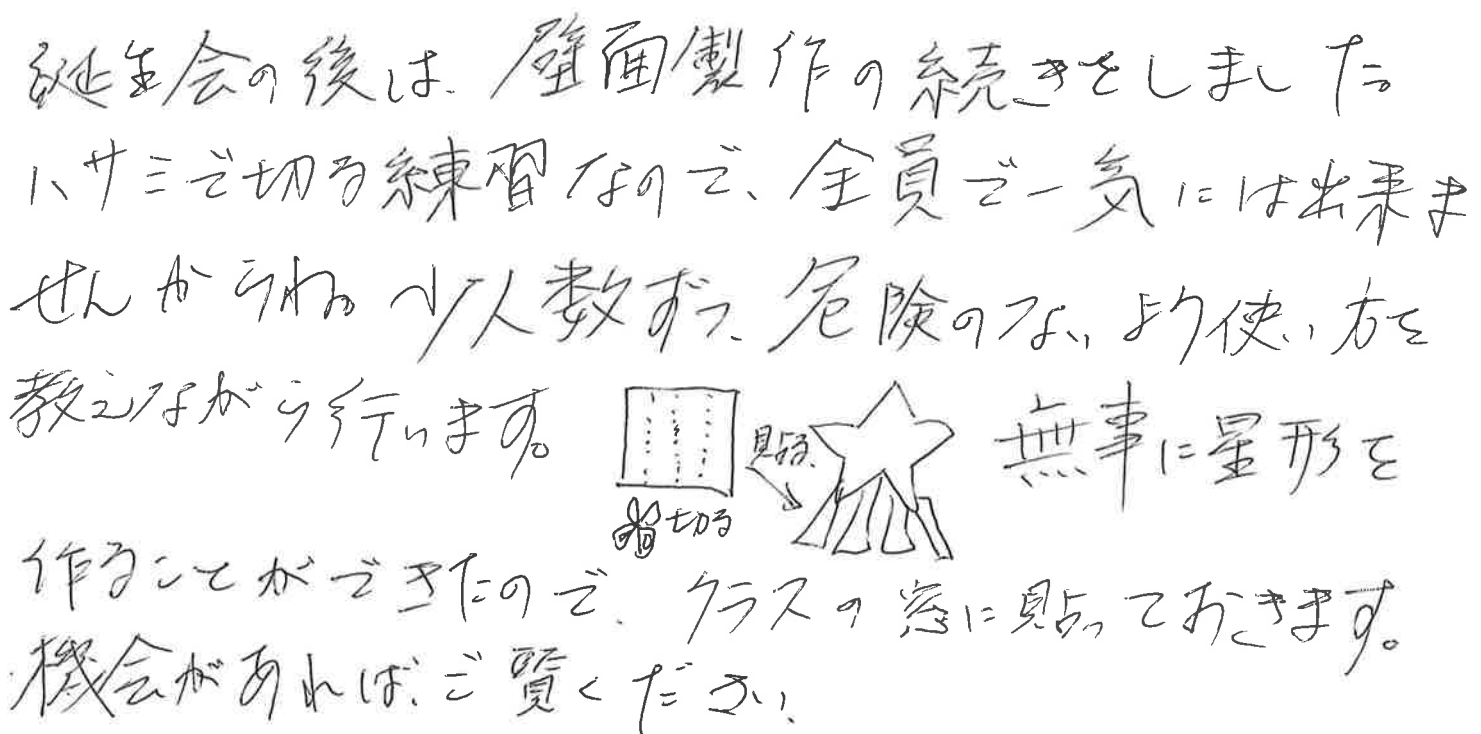 誕生会の後は、壁面製作の続きをしました。
ハサミで切る練習なので、全員で一気には出来ま
せんからね。少人数ずつ、危険のないよう使い方を
教えながら行います。
貼る
切る
無事に星形を
作ることができたので、クラスの窓に貼っておきます。
機会があれば、ご覧ください。